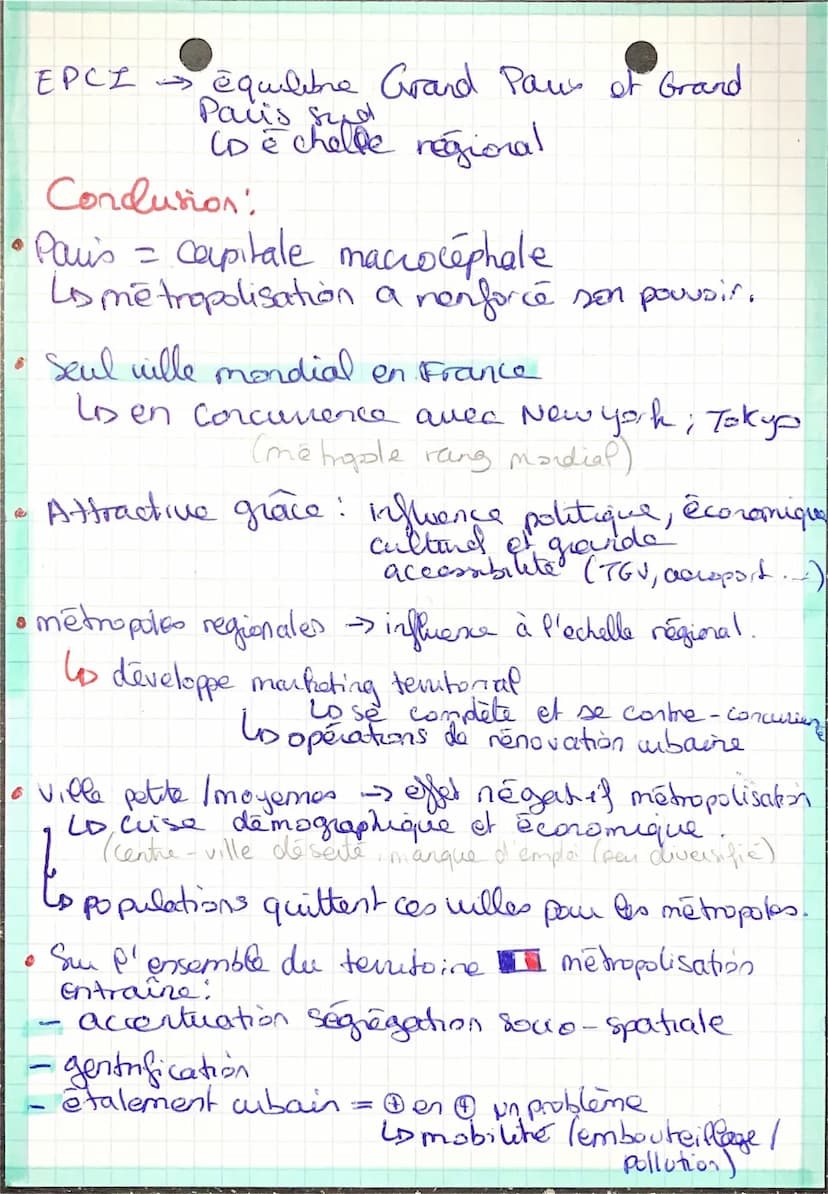 EPCI → équilibre Grand Paris et Grand
Paris sud
↳ échelle régional
Conclusion:
• Paris = capitale macrocéphale
↳ métropolisation a renforcé son pouvoir.
• Seul ville mondial en France
↳ en concurrence avec New york ; Tokyo
(métropole rang mondial)
• Attractive grâce : influence politique, économique
culturel et grande
accessibilité (TGV, aéroport...)
• métropoles regionales → influence à l'echelle régional.
↳ développe marketing territorial
↳ se complète et se contre-concurience
↳ opérations de rénovation urbaine
• Ville petite / moyennes → effet négatif métropolisation
↳ crise démographique et économique.
(centre-ville déserté, manque d'emploi (peu diversifié)
↳ populations quittent ces villes pour les métropoles.
• Sur l'ensemble du territoire 🇫🇷 métropolisation
Entraîne :
- accentuation ségrégation socio-spatiale
- gentrification
- étalement urbain = ⊕ en ⊕ un problème
↳ mobilité (embouteillage /
pollution)